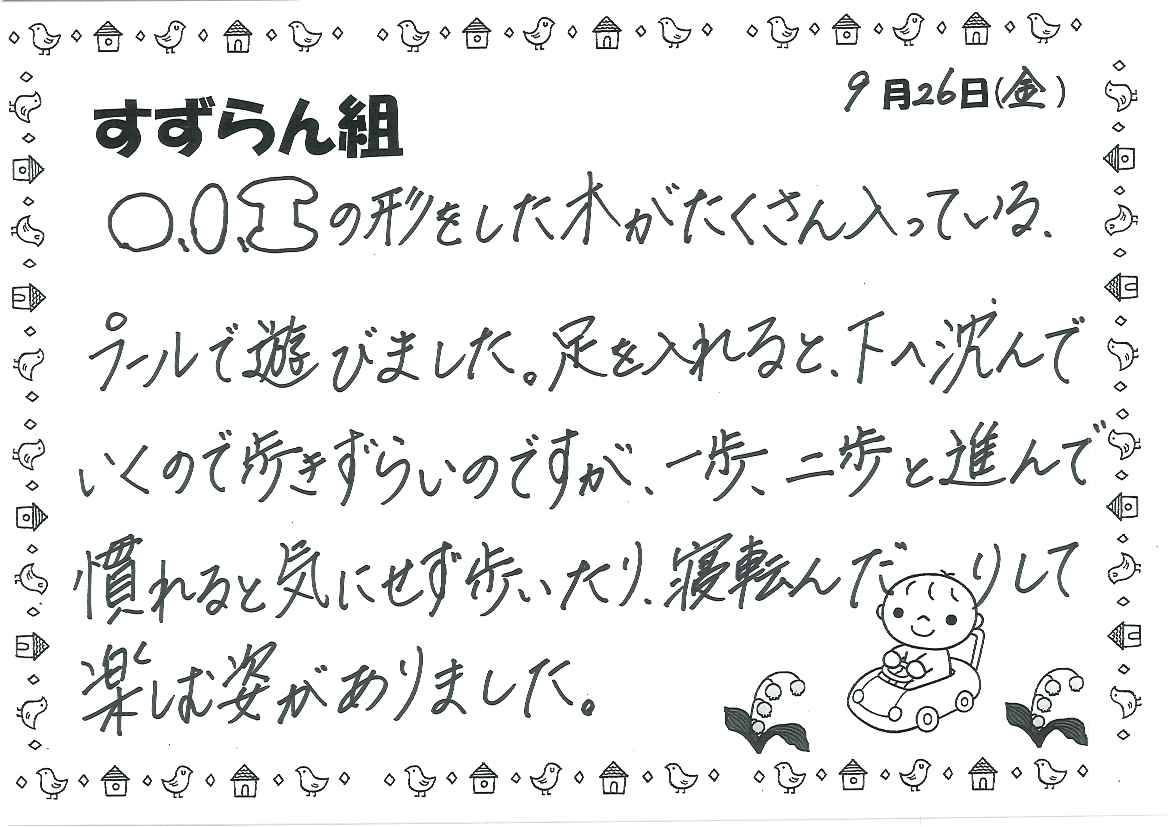 9月26日(金)
すずらん組
○、0、工の形をした木がたくさん入っている、
プールで遊びました。足を入れると、下へ沈んで
いくので歩きずらいのですが、一歩、二歩と進んで
慣れると気にせず歩いたり、寝転んだりして
楽しむ姿がありました。